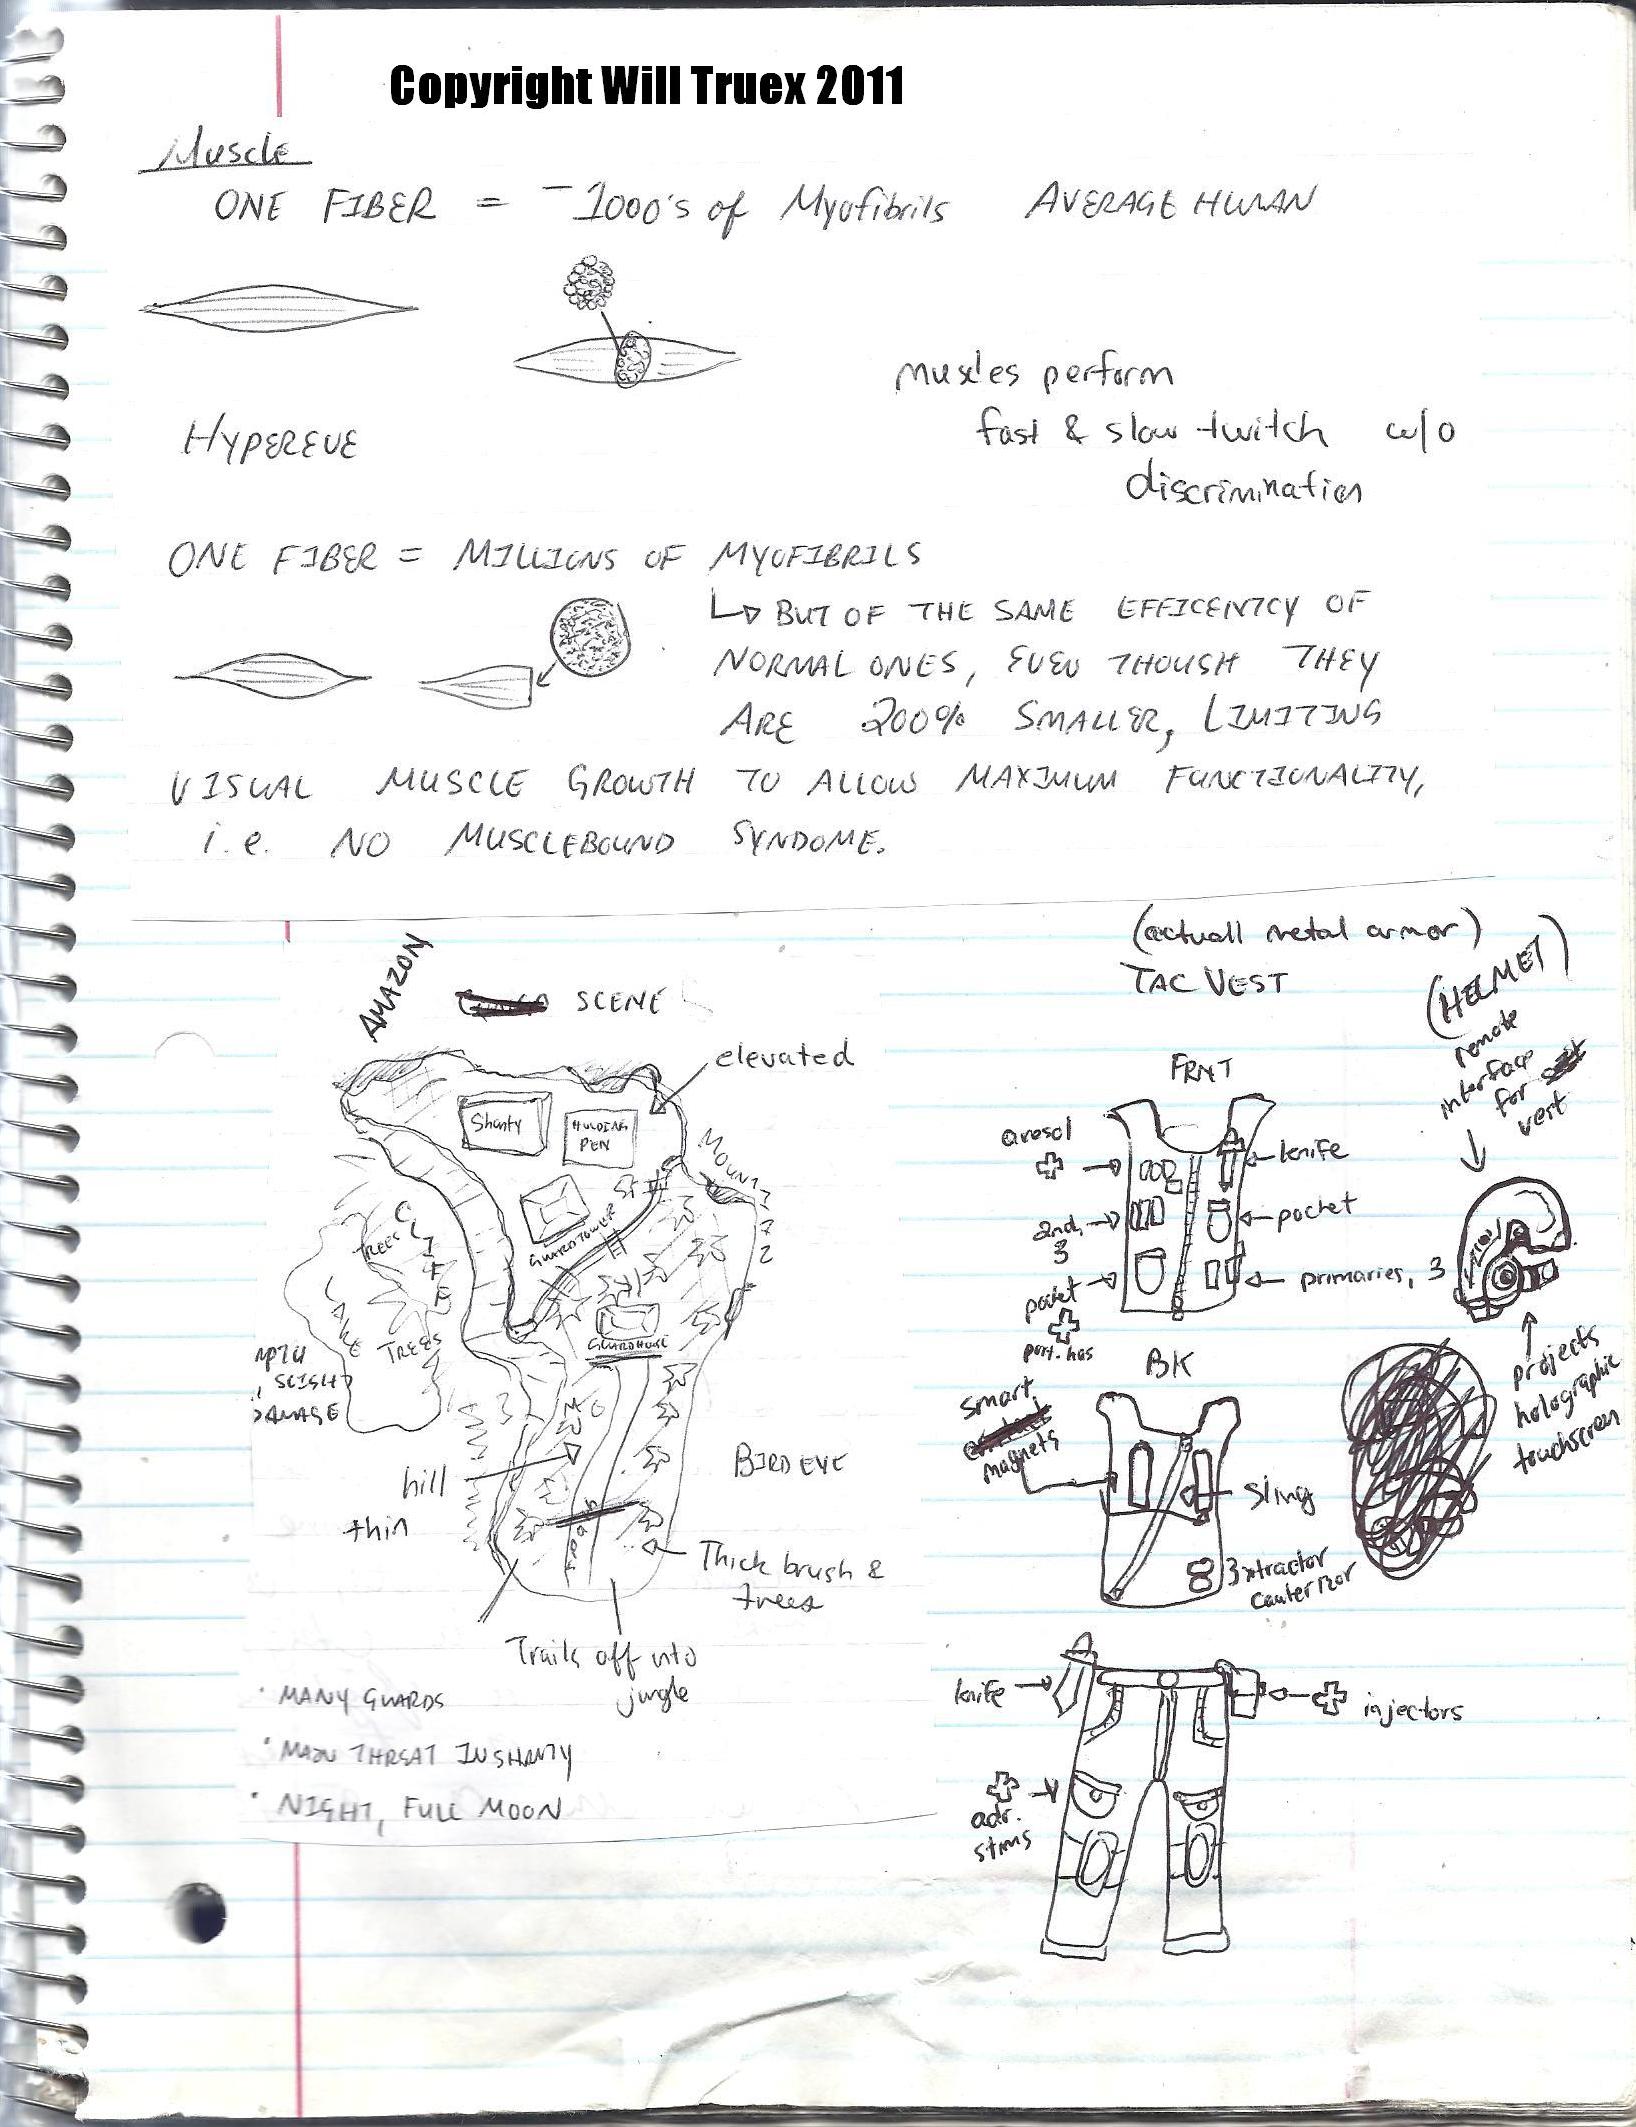 Copyright Will Truex 2011
Muscle
ONE FIBER = ~1000's of Myofibrils AVERAGE HUMAN
muscles perform
fast & slow twitch w/o
discrimination
HYPEREVE
ONE FIBER = MILLIONS OF MYOFIBRILS
↳ BUT OF THE SAME EFFICENTCY OF
NORMAL ONES, EVEN THOUGH THEY
ARE 200% SMALLER, LIMITING
VISUAL MUSCLE GROWTH TO ALLOW MAXIMUM FUNCTIONALITY,
i.e. NO MUSCLEBOUND SYNDOME.
AMAZON
SCENE
elevated
Shanty
HOLDING
PEN
MOUNT
GUARDTOWER
TREES
CLIFF
LAKE
TREES
GUARDHOUSE
DAMAGE
hill
thin
BIRDEYE
Thick brush &
trees
Trails off into
jungle
· MANY GUARDS
· MAIN THREAT IN SHANTY
· NIGHT, FULL MOON
(actuall metal armor)
TAC VEST
(HELMET)
remote
interface
for
vest
FRNT
aresol
knife
2nd,
3
pocket
pocket
primaries, 3
projects
holographic
touchscreen
BK
smart
magnets
sling
extractor
cauterizor
knife
injectors
adr.
stms